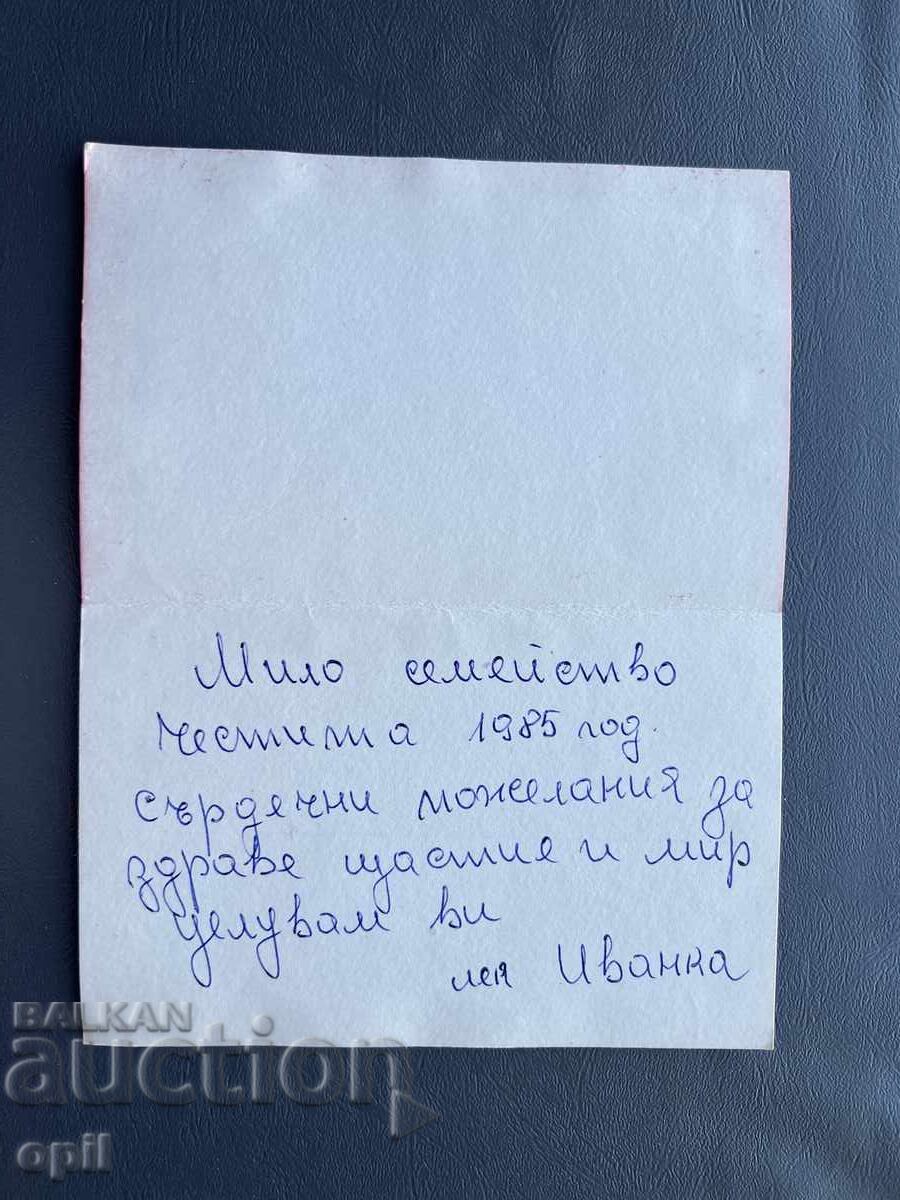 Мило семейство
Честита 1985 год.
Сърдечни пожелания за
здраве щастие и мир
Целувам ви
леля Иванка
BALKAN
auction
opil